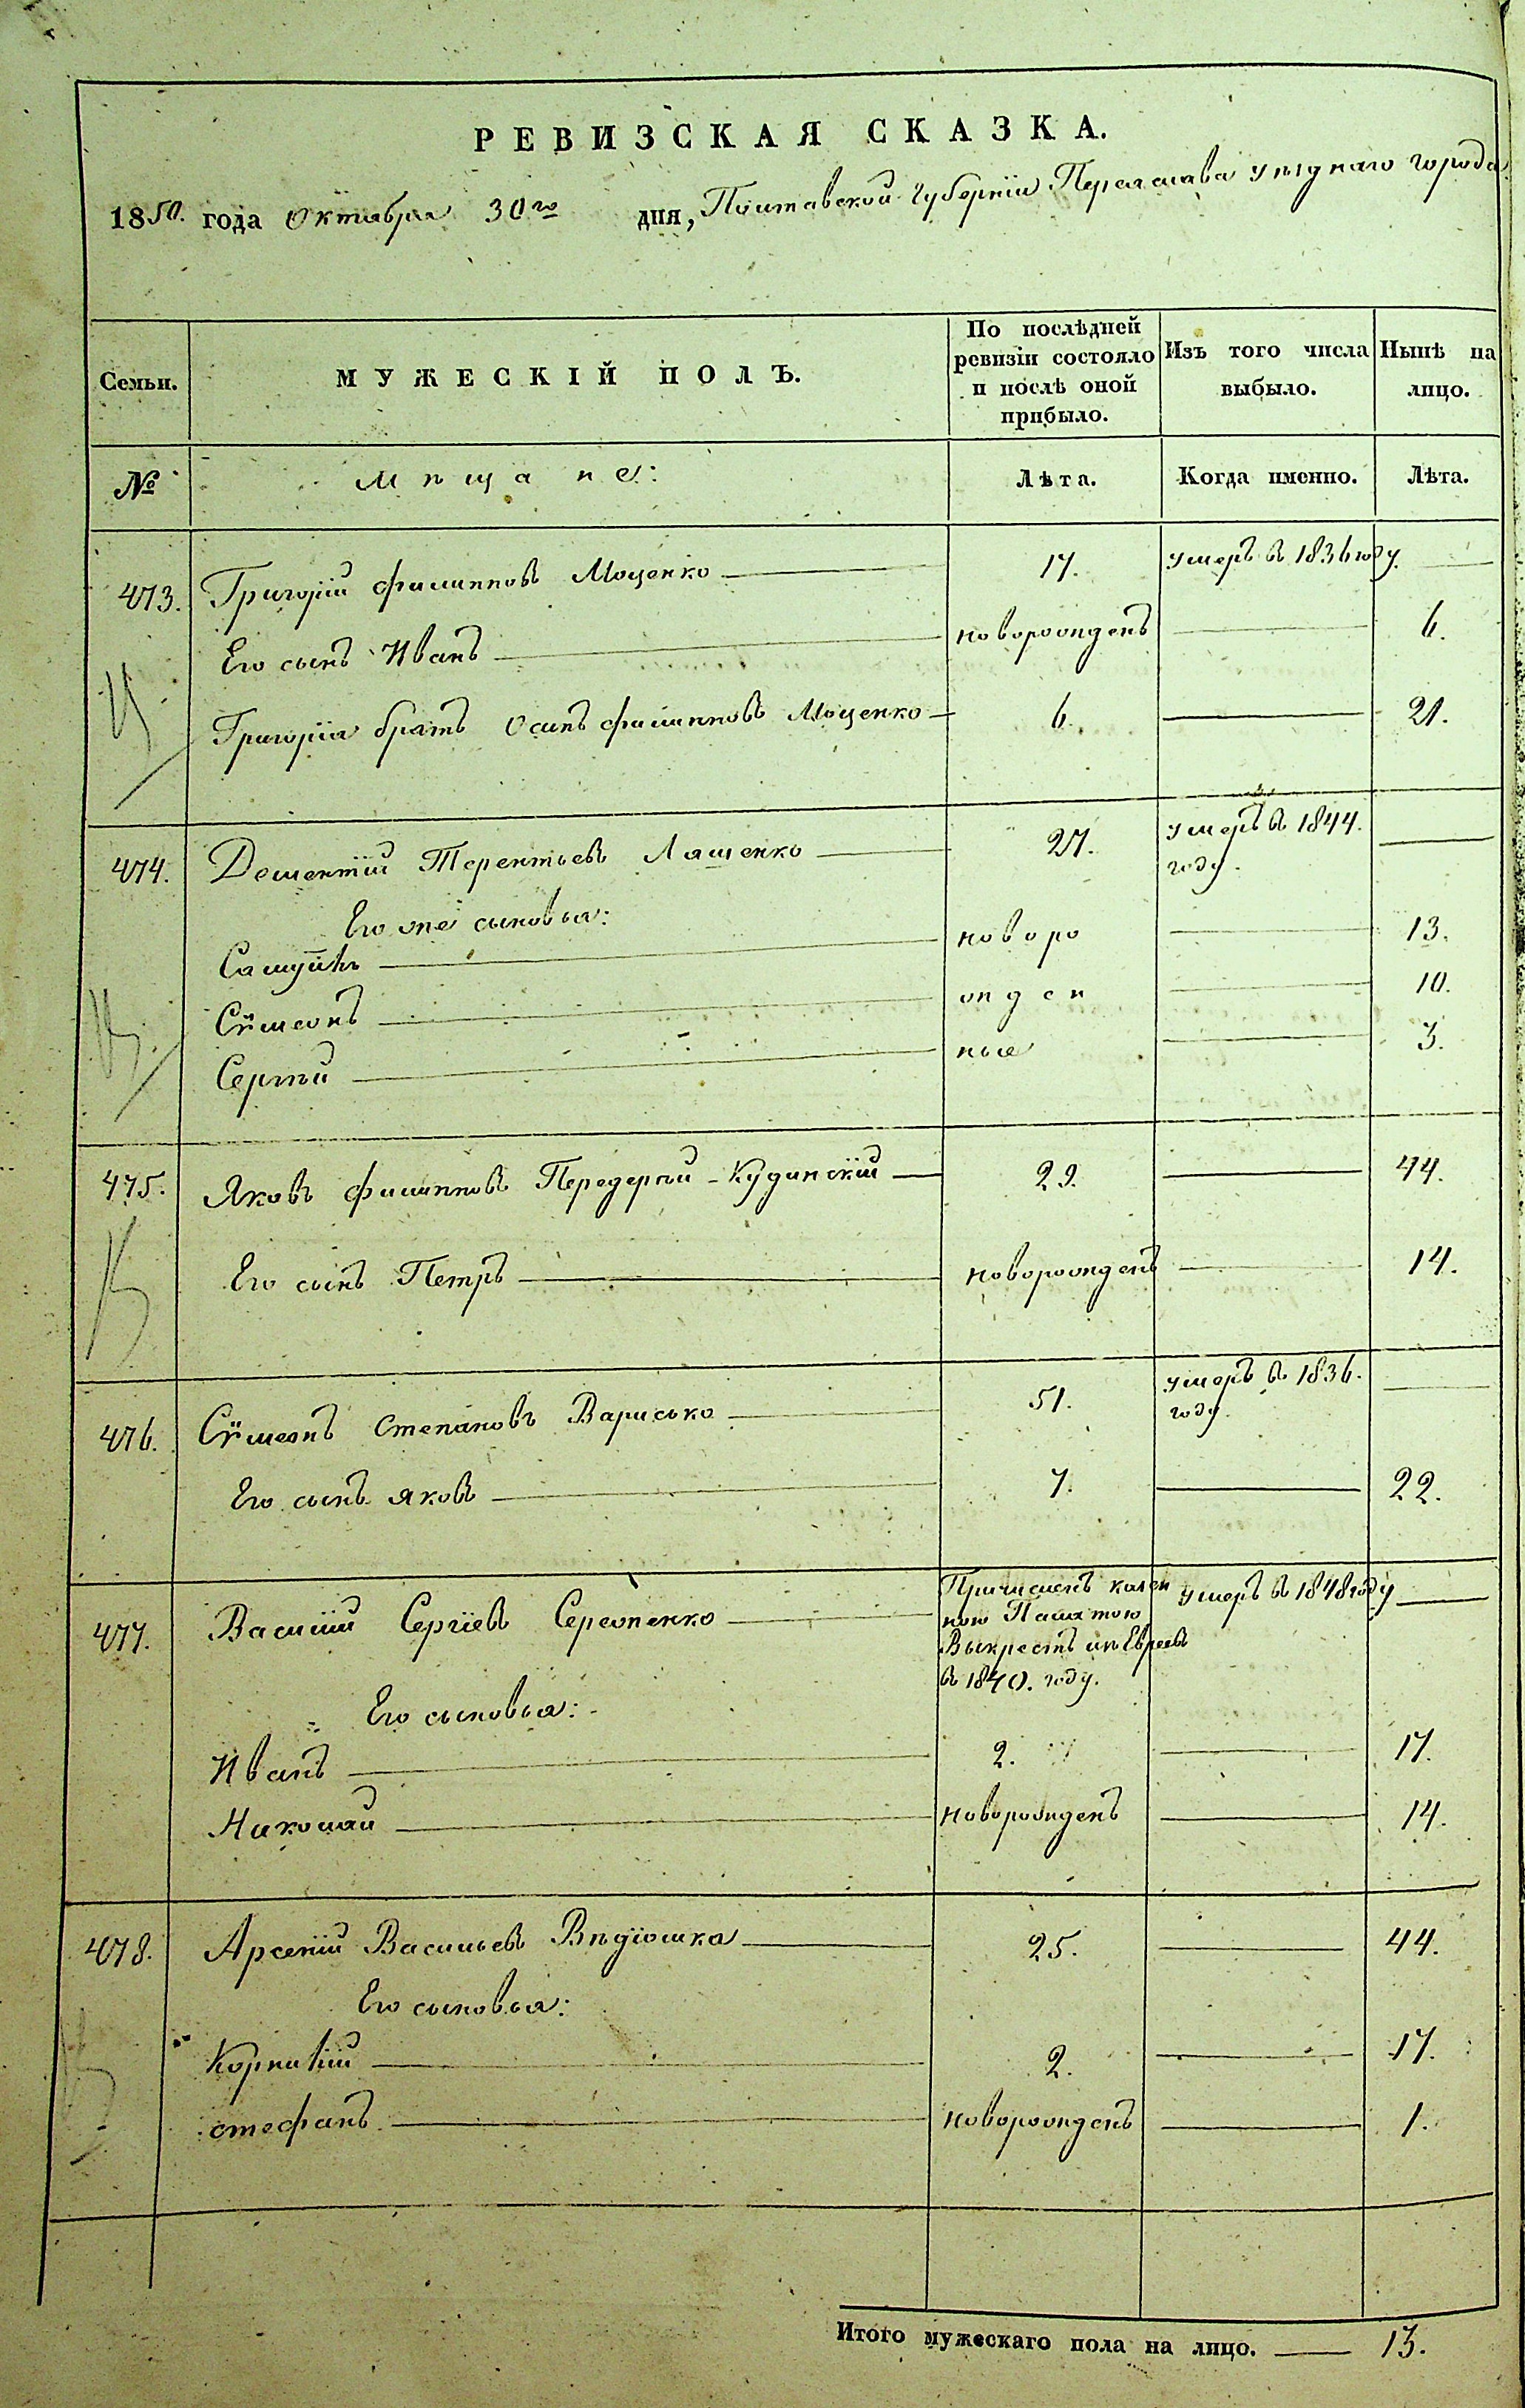 РЕВИЗСКАЯ СКАЗКА.
1850. года Октября 30го дня, Полтавской Губерніи Переяслава уѣзднаго города
Семьи. МУЖЕСКІЙ ПОЛЪ. По послѣдней ревизіи состояло и послѣ оной прибыло. Изъ того числа выбыло. Нынѣ на лицо.
№ Мѣщане: Лѣта. Когда именно. Лѣта.
473. Григорій Филиповъ Моценко 17. умеръ въ 1836 году.
Его сынъ Иванъ новорожденъ 6.
Григорія братъ Осипъ Филиповъ Моценко 6. 21.
474. Дементій Терентьевъ Ляшенко 27. умеръ въ 1844. году.
Его же сыновья:
Самуилъ новоро 13.
Сѵмеонъ жден 10.
Сергѣй ные 3.
475. Яковъ Филиповъ Передерій-Кудинскій 29. 44.
Его сынъ Петръ новорожденъ 14.
476. Сѵмеонъ Степановъ Варисько 51. умеръ въ 1836. году.
Его сынъ Яковъ 7. 22.
477. Василій Сергіевъ Сереженко Причисленъ казен
ною Палатою
Выкрестъ изъ Евреевъ
въ 1840. году. умеръ въ 1848 году
Его сыновья:
Иванъ 2. 17.
Николай новорожденъ 14.
478. Арсеній Васильевъ Вѣдіошка 25. 44.
Его сыновья:
Корнилій 2. 17.
Стефанъ новорожденъ 1.
Итого мужескаго пола на лицо. 13.